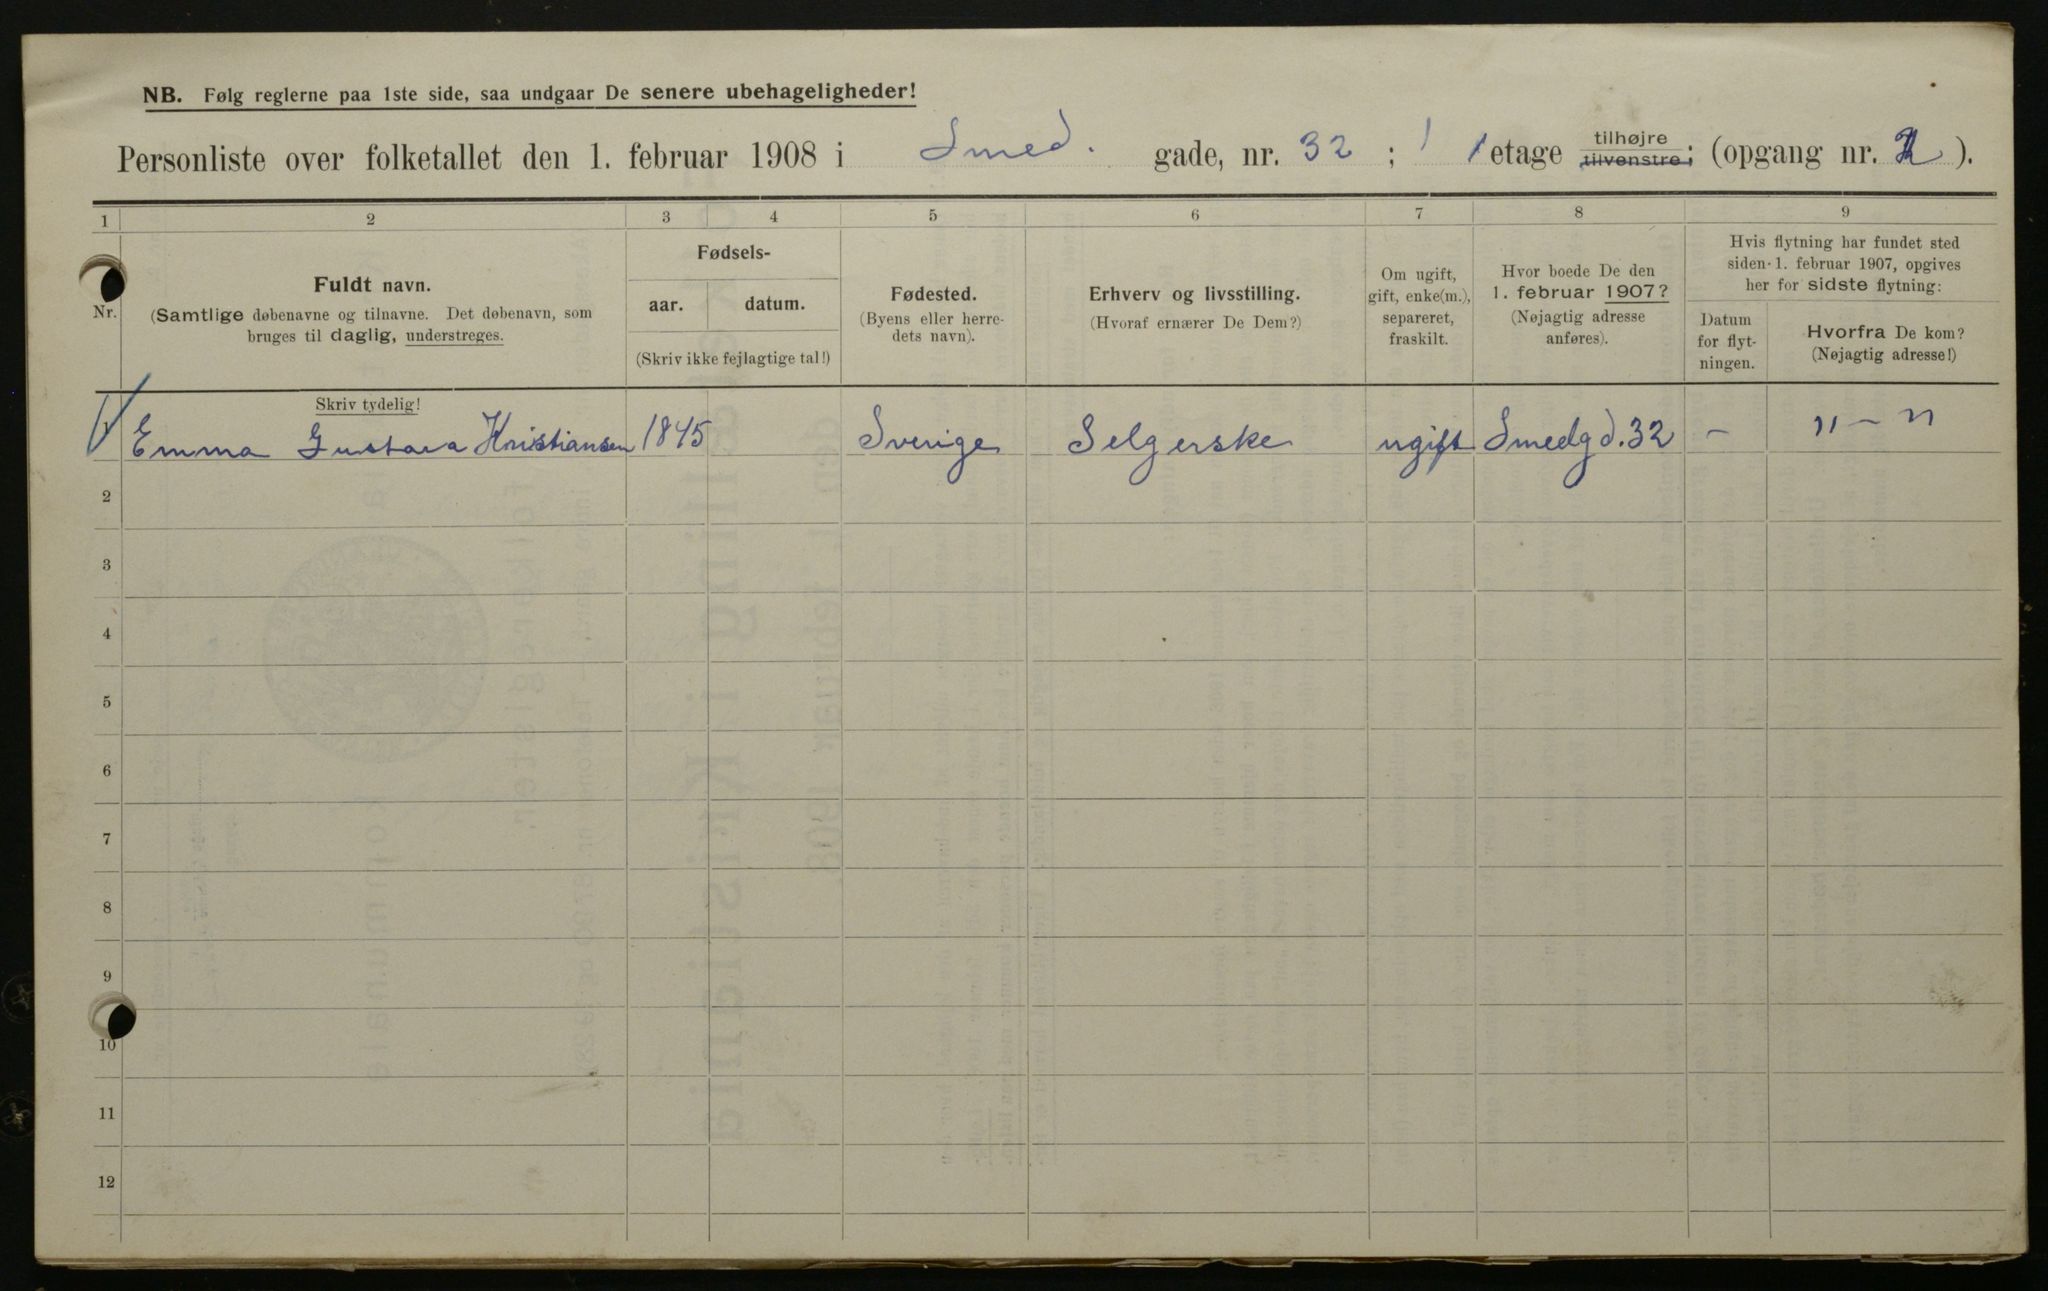 NB. Følg reglerne paa 1ste side, saa undgaar De senere ubehageligheder!
Personliste over folketallet den 1. februar 1908 i Smed. gade, nr. 32 ; 1 etage tilhøjre tilvenstre; (opgang nr. 2 ).
1 2 3 4 5 6 7 8 9
Nr.
Fuldt navn.
(Samtlige døbenavne og tilnavne. Det døbenavn, som
bruges til daglig, understreges.
Skriv tydelig!
Fødsels-
aar. datum.
(Skriv ikke fejlagtige tal!)
Fødested.
(Byens eller herre-
dets navn).
Erhverv og livsstilling.
(Hvoraf ernærer De Dem?)
Om ugift,
gift, enke(m.),
separeret,
fraskilt.
Hvor boede De den
1. februar 1907?
(Nøjagtig adresse
anføres).
Hvis flytning har fundet sted
siden 1. februar 1907, opgives
her for sidste flytning:
Datum
for flyt-
ningen.
Hvorfra De kom?
(Nøjagtig adresse!)
1 Emma Gustava Kristiansen 1845 Sverige Selgerske ugift Smedgd. 32 – " – "
2
3
4
5
6
7
8
9
10
11
12